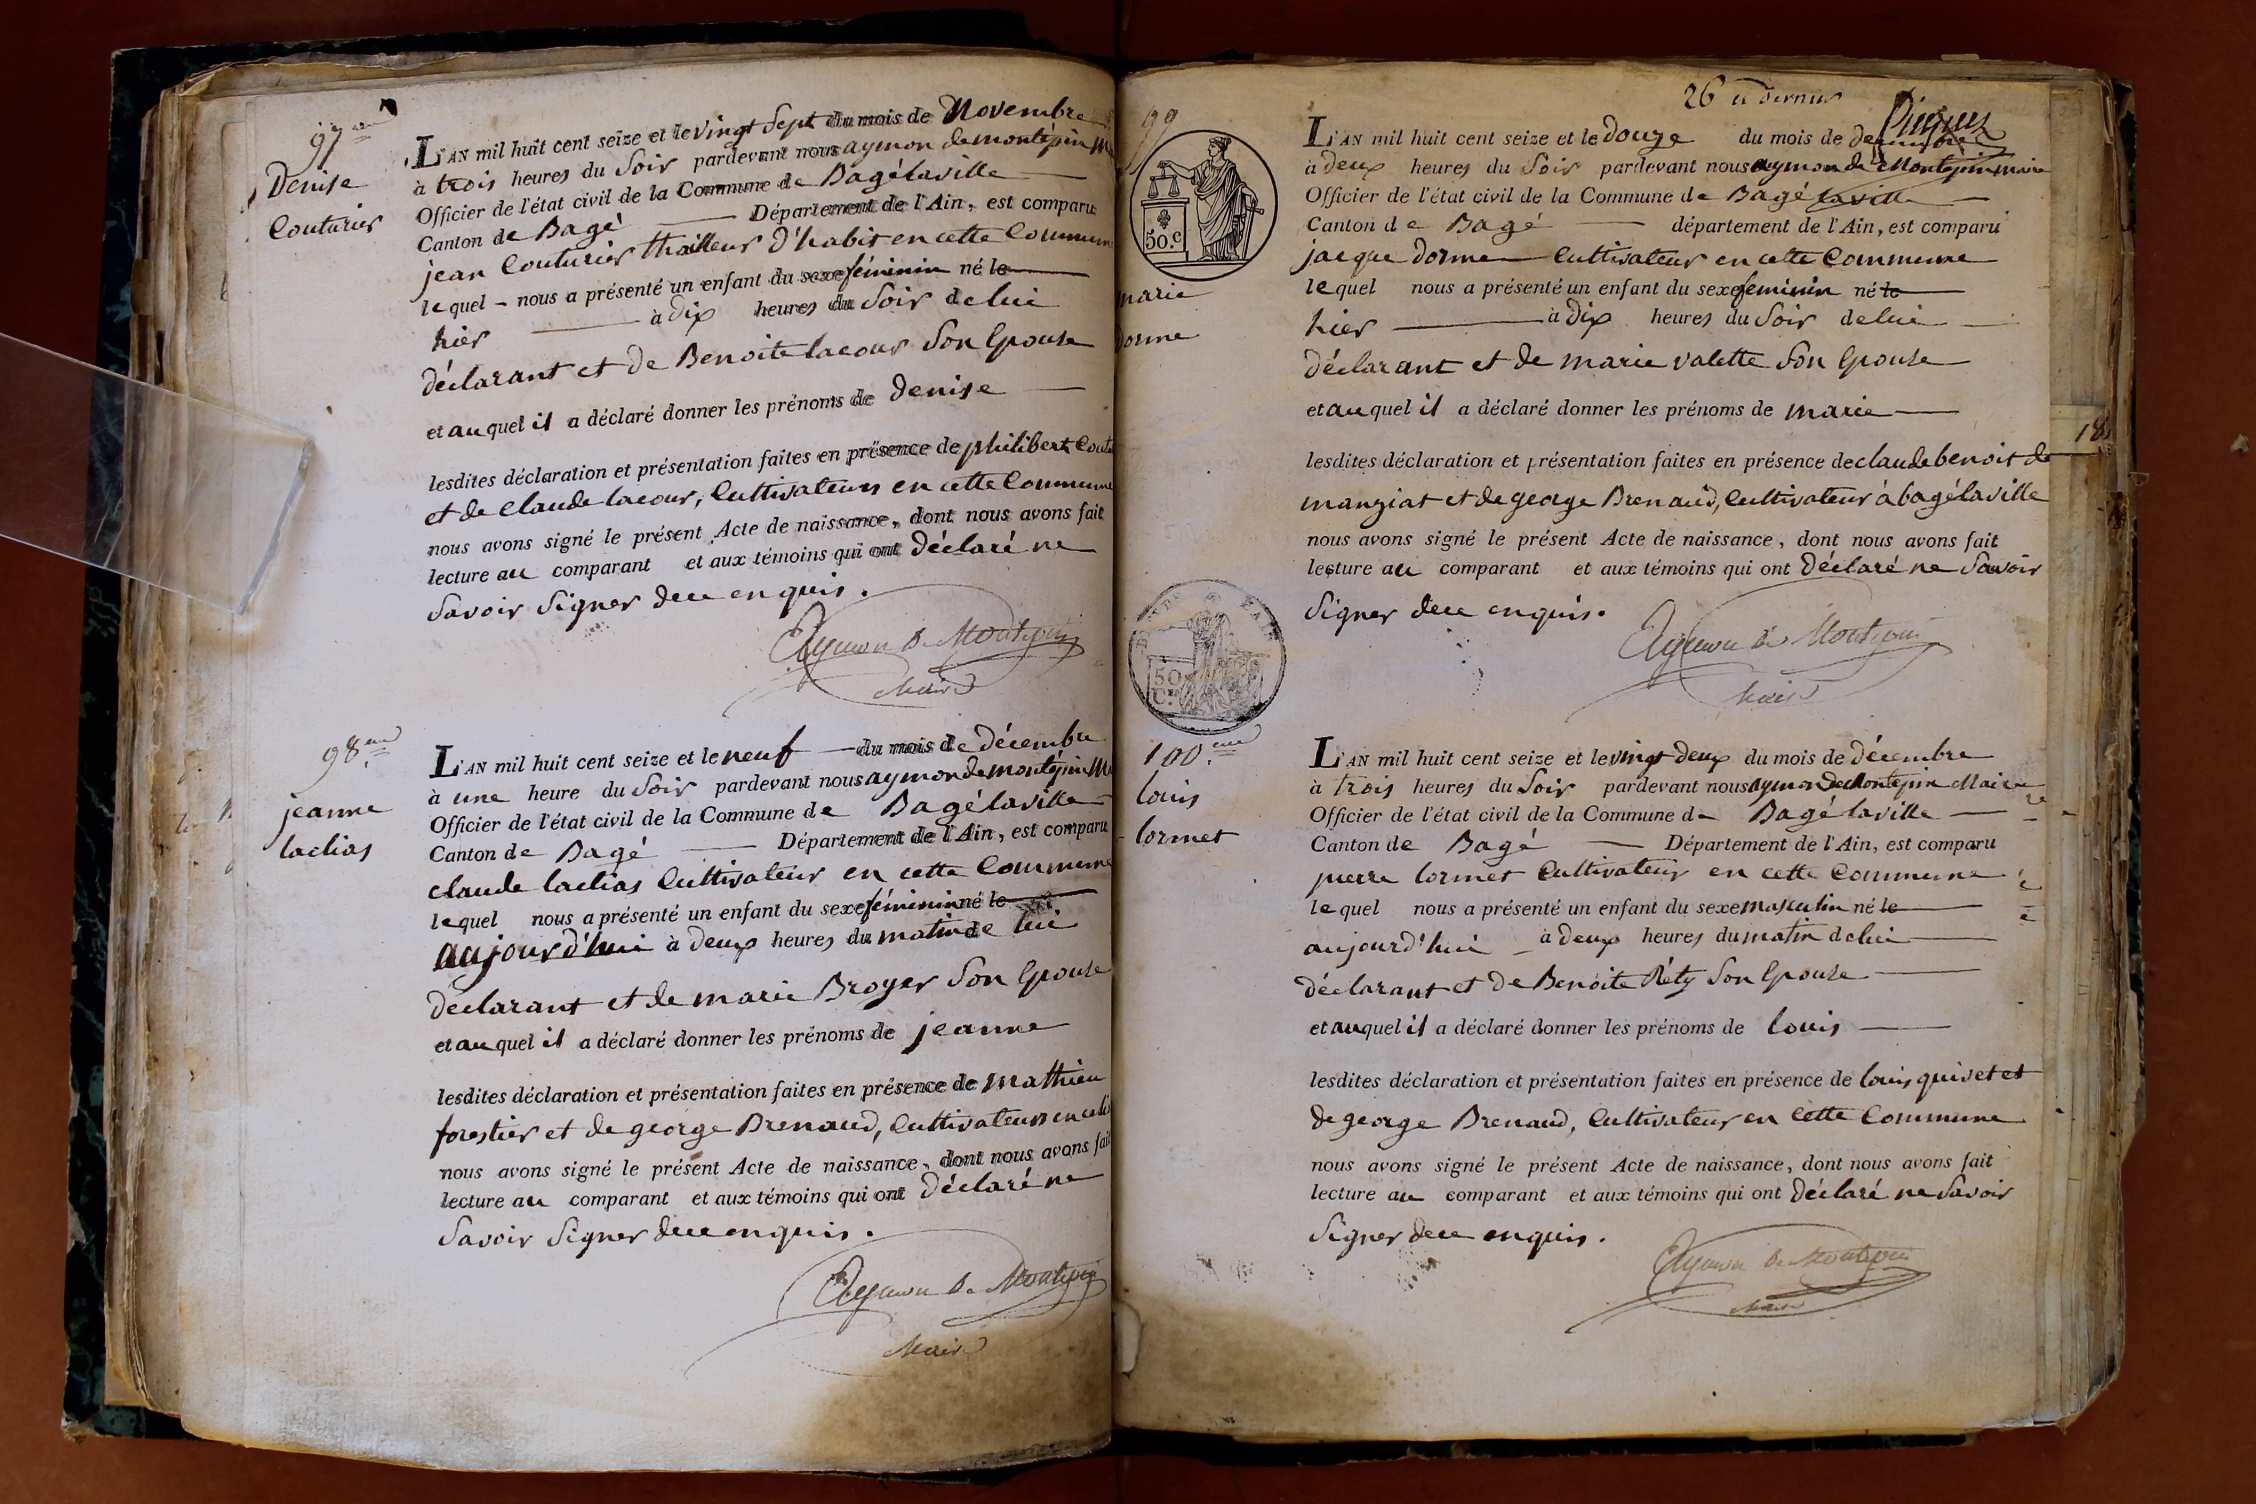 97eme
Denise
Couturier
L'AN mil huit cent seize et le vingt Sept du mois de Novembre
à trois heures du Soir pardevant nous aymon de montépin
Officier de l'état civil de la Commune de Bagélaville
Canton de Bagé Département de l'Ain, est comparu
jean Couturier thailleur d'habit en cette Commune
lequel nous a présenté un enfant du sexe féminin né le
hier à dix heures du Soir de lui
déclarant et de Benoite lacour Son Epouse
et auquel il a déclaré donner les prénoms de denise
lesdites déclaration et présentation faites en présence de philibert
et de Claude lacour, Cultivateurs en cette Commune
nous avons signé le présent Acte de naissance, dont nous avons fait
lecture au comparant et aux témoins qui ont déclaré ne
Savoir Signer dece enquis.
Aymon de Montepin
Maire
98.eme
jeanne
laclias
L'AN mil huit cent seize et le neuf du mois de décembre
à une heure du Soir pardevant nous aymon de montépin
Officier de l'état civil de la Commune de Bagélaville
Canton de Bagé Département de l'Ain, est comparu
claude laclias Cultivateur en cette Commune
lequel nous a présenté un enfant du sexe féminin né le
aujourd'hui à deux heures du matin de lui
déclarant et de marie Broyer Son Epouse
et auquel il a déclaré donner les prénoms de jeanne
lesdites déclaration et présentation faites en présence de mathieu
forestier et de george Brenaud, Cultivateurs en
nous avons signé le présent Acte de naissance, dont nous avons fait
lecture au comparant et aux témoins qui ont déclaré ne
Savoir Signer dece enquis.
Aymon de Montepin
Maire
26 et dernier
99
50.C
marie
dorme
L'AN mil huit cent seize et le douze du mois de decembre
à deux heures du Soir pardevant nous aymon de Montepin maire
Officier de l'état civil de la Commune de Bagélaville
Canton de Bagé département de l'Ain, est comparu
jacque dorme Cultivateur en cette Commune
lequel nous a présenté un enfant du sexe feminin né le
hier à dix heures du Soir de lui
déclarant et de marie valette Son Epouse
et auquel il a déclaré donner les prénoms de marie
lesdites déclaration et présentation faites en présence de claude benoit de
manziat et de george Brenaud, Cultivateur à bagélaville
nous avons signé le présent Acte de naissance, dont nous avons fait
lecture au comparant et aux témoins qui ont déclaré ne Savoir
Signer dece enquis.
Aymon de Montepin
Maire
50
18
100.eme
louis
lormet
L'AN mil huit cent seize et le vingt deux du mois de décembre
à trois heures du Soir pardevant nous aymon de Montepin Maire
Officier de l'état civil de la Commune de Bagélaville
Canton de Bagé Département de l'Ain, est comparu
pierre lormet Cultivateur en cette Commune
lequel nous a présenté un enfant du sexe masculin né le
aujourd'hui à deux heures du matin de lui
déclarant et de Benoite Réty Son Epouse
et auquel il a déclaré donner les prénoms de louis
lesdites déclaration et présentation faites en présence de louis quivet et
de george Brenaud, Cultivateur en cette Commune
nous avons signé le présent Acte de naissance, dont nous avons fait
lecture au comparant et aux témoins qui ont déclaré ne Savoir
Signer dece enquis.
Aymon de Montepin
Maire